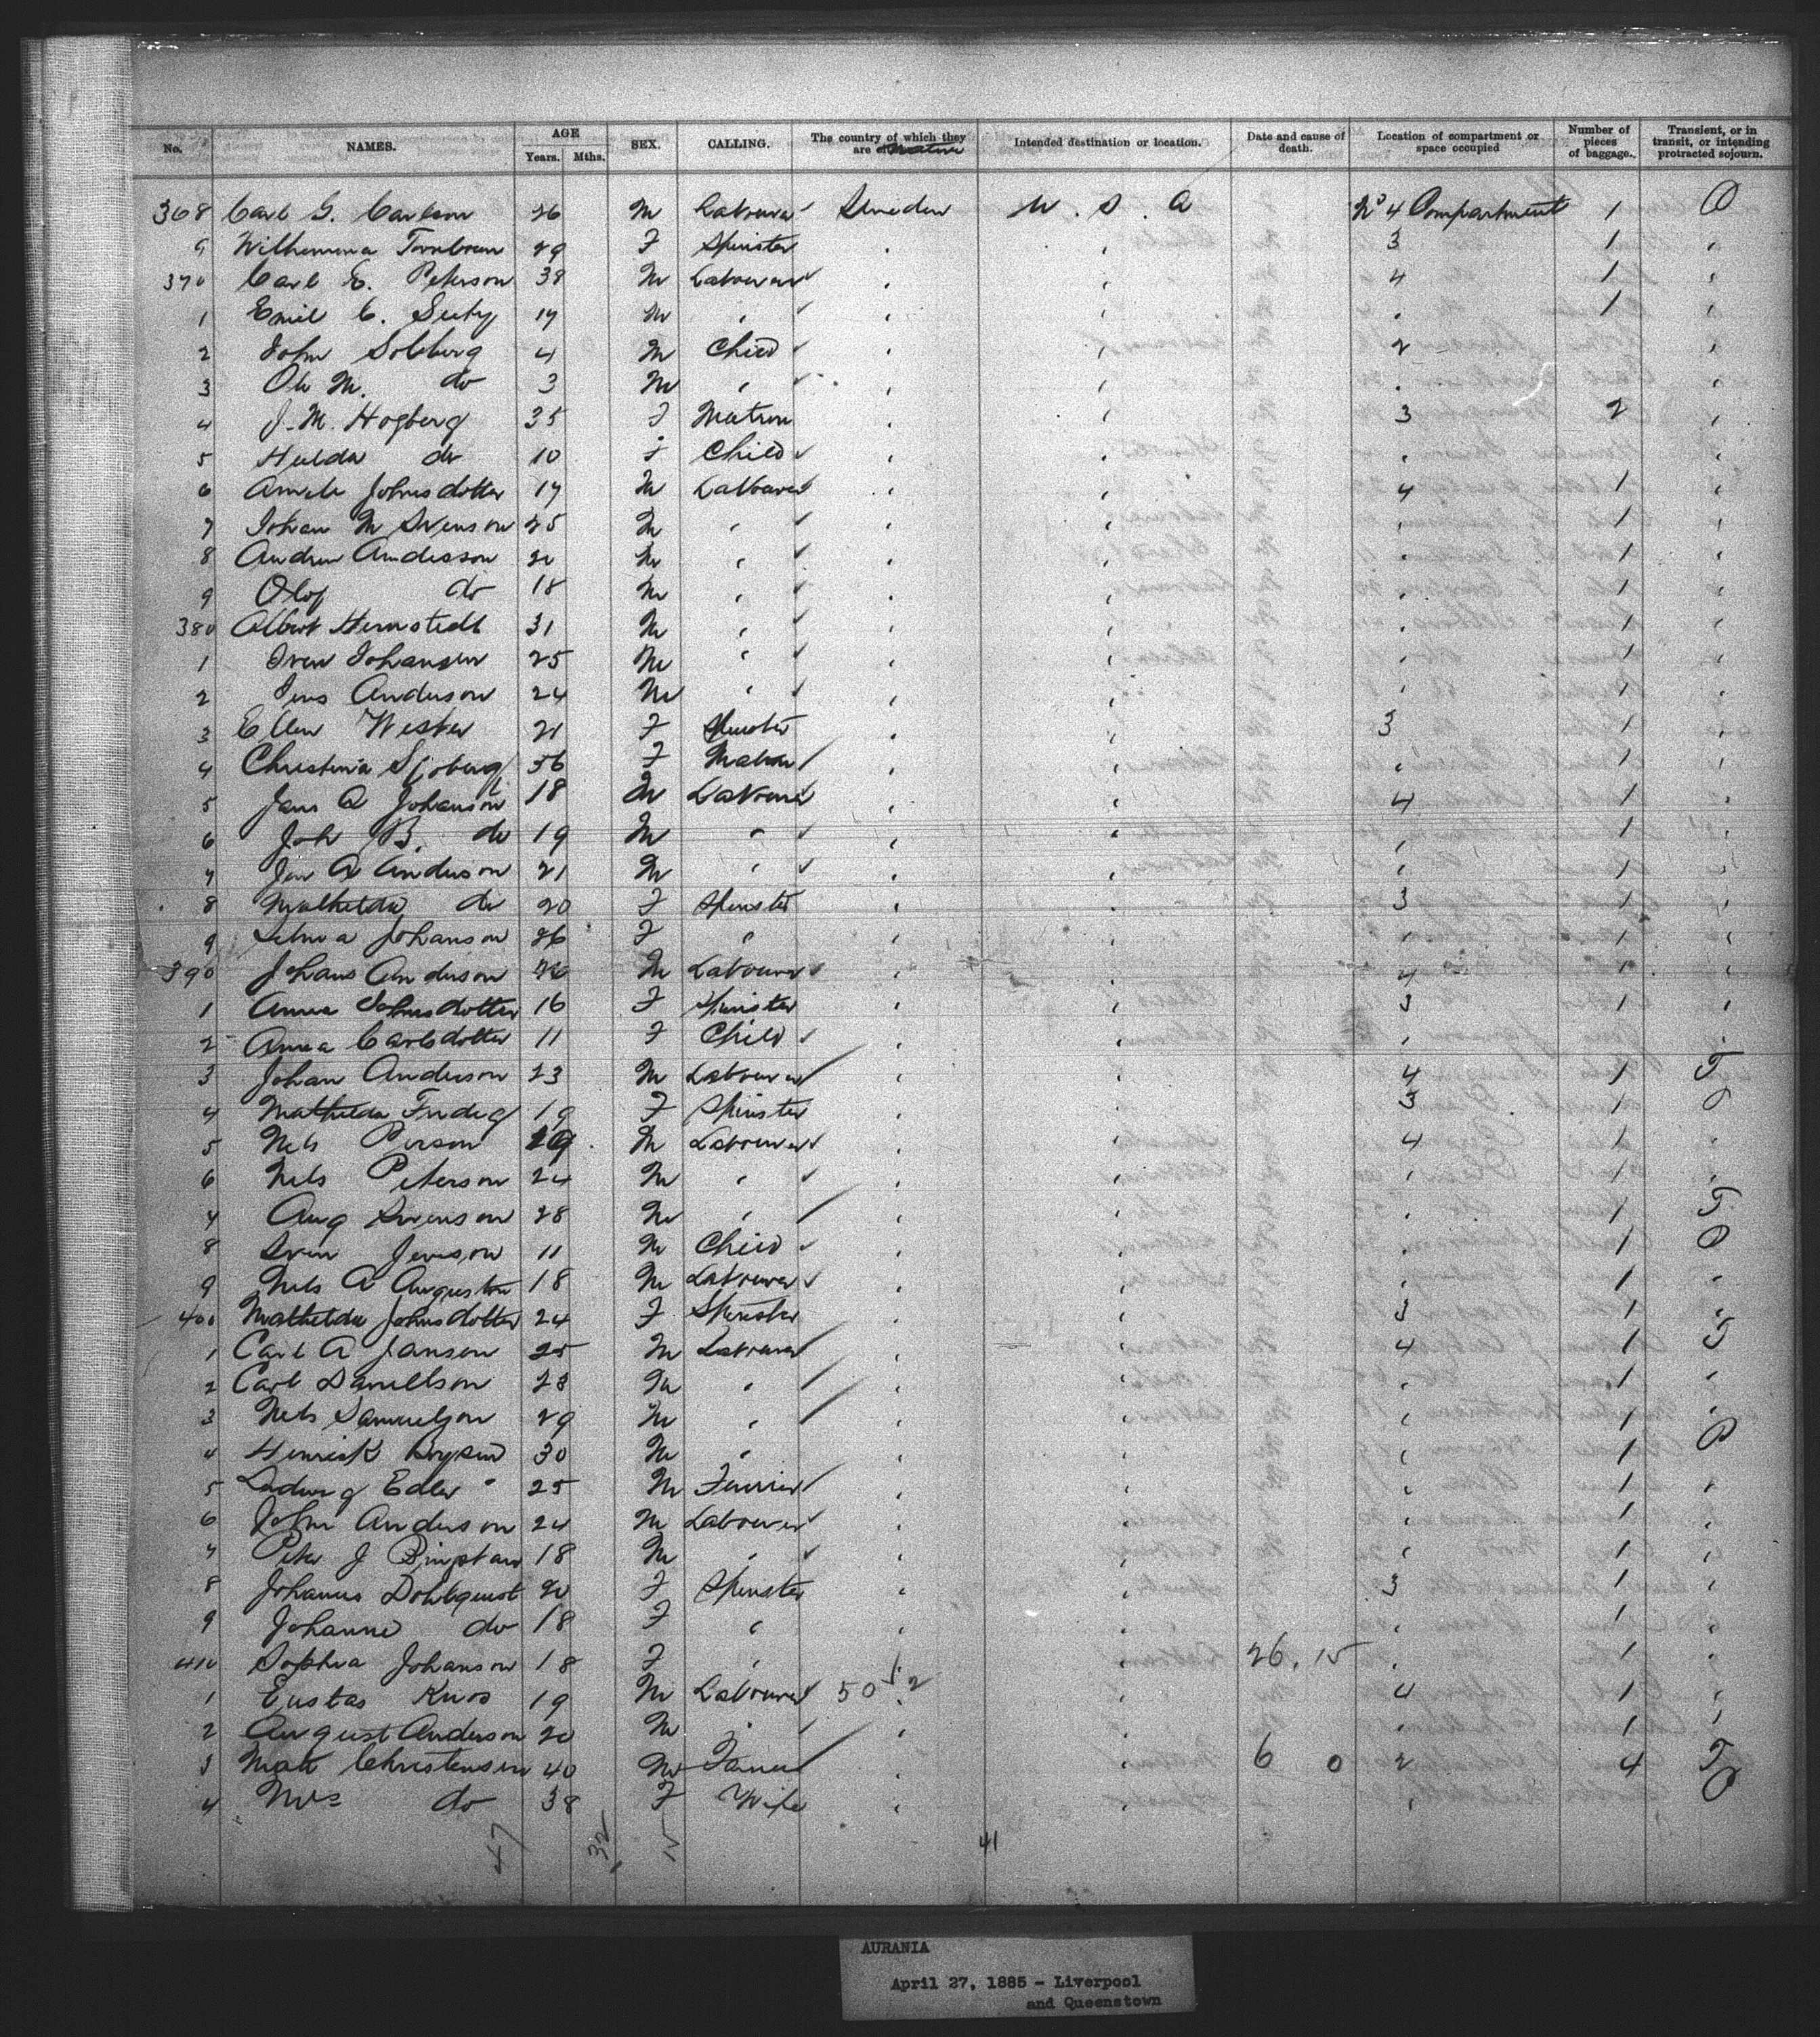 No. NAMES. AGE Years. Mths. SEX. CALLING. The country of which they are Native Intended destination or location. Date and cause of death. Location of compartment or space occupied Number of pieces of baggage. Transient, or in transit, or intending protracted sojourn.
368 Carl G. Carlson 26 M Labourer Sweden U. S. A No 4 Compartment 1 O
9 Wilhemina 29 F Spinster " " 3 1 "
370 Carl E. Peterson 38 M Labourer " " 4 1 "
1 Emil C. 19 M " " " " 1 "
2 John Solberg 4 M Child " " 2 "
3 Ole M. do 3 M " " " " "
4 J. M. Hogberg 35 F Matron " " 3 2 "
5 Hulda do 10 F Child " " " "
6 Johnsdotter 17 M Labourer " " 4 1 "
7 Johan M Svenson 25 M " " " " 1 "
8 Andrew Anderson 20 M " " " " 1 "
9 Olof do 18 M " " " " 1 "
380 Albert Hernstedt 31 M " " " " 1 "
1 Sven Johansen 25 M " " " " 1 "
2 Jens Anderson 24 M " " " " 1 "
3 Ellen Wester 21 F Spinster " " 3 1 "
4 Christina Sjoberg 56 F Matron " " " 1 "
5 Jans A Johanson 18 M Labourer " " 4 1 "
6 Joh B. do 19 M " " " " 1 "
7 Jon A Anderson 21 M " " " " 1 "
8 Mathilda do 20 F Spinster " " 3 1 "
9 Selma Johanson 26 F " " " " 1 "
390 Johans Anderson 26 M Labourer " " 4 1 "
1 Anna Johnsdotter 16 F Spinster " " 3 1 "
2 Anna Carlsdotter 11 F Child " " " "
3 Johan Anderson 23 M Labourer " " 4 1 T
4 Mathilda 19 F Spinster " " 3 1 O
5 Nels Person 29 M Labourer " " 4 1 "
6 Nels Peterson 24 M " " " " 1 "
7 Aug Svenson 28 M " " " " 1 T
8 Sven Jenson 11 M Child " " " 1 O
9 Nels A Auguston 18 M Labourer " " " 1 "
400 Mathilda Johnsdotter 24 F Spinster " " 3 1 "
1 Carl A Janson 25 M Labourer " " 4 1 T
2 Carl Daniellson 28 M " " " " 1 "
3 Nels Samuelson 29 M " " " " 1 "
4 Henrick 30 M " " " " 1 O
5 Ludwig Edler 25 M " " " 1 "
6 John Anderson 24 M Labourer " " " 1 "
7 Peter J 18 M " " " " 1 "
8 Johanna Dohlquist 20 F Spinster " " 3 1 "
9 Johanne do 18 F " " " " 1 "
410 Sophia Johanson 18 F " " " 26. 15 " 1 "
1 Knos 19 M Labourer 50 2 " 4 1 "
2 August Anderson 20 M " " " " 1 "
3 Matt Christensen 40 M Farmer " " 6 0 2 4 T
4 Mrs do 38 F Wife " " " O
47 32 15 41
AURANIA
April 27, 1885 - Liverpool
and Queenstown